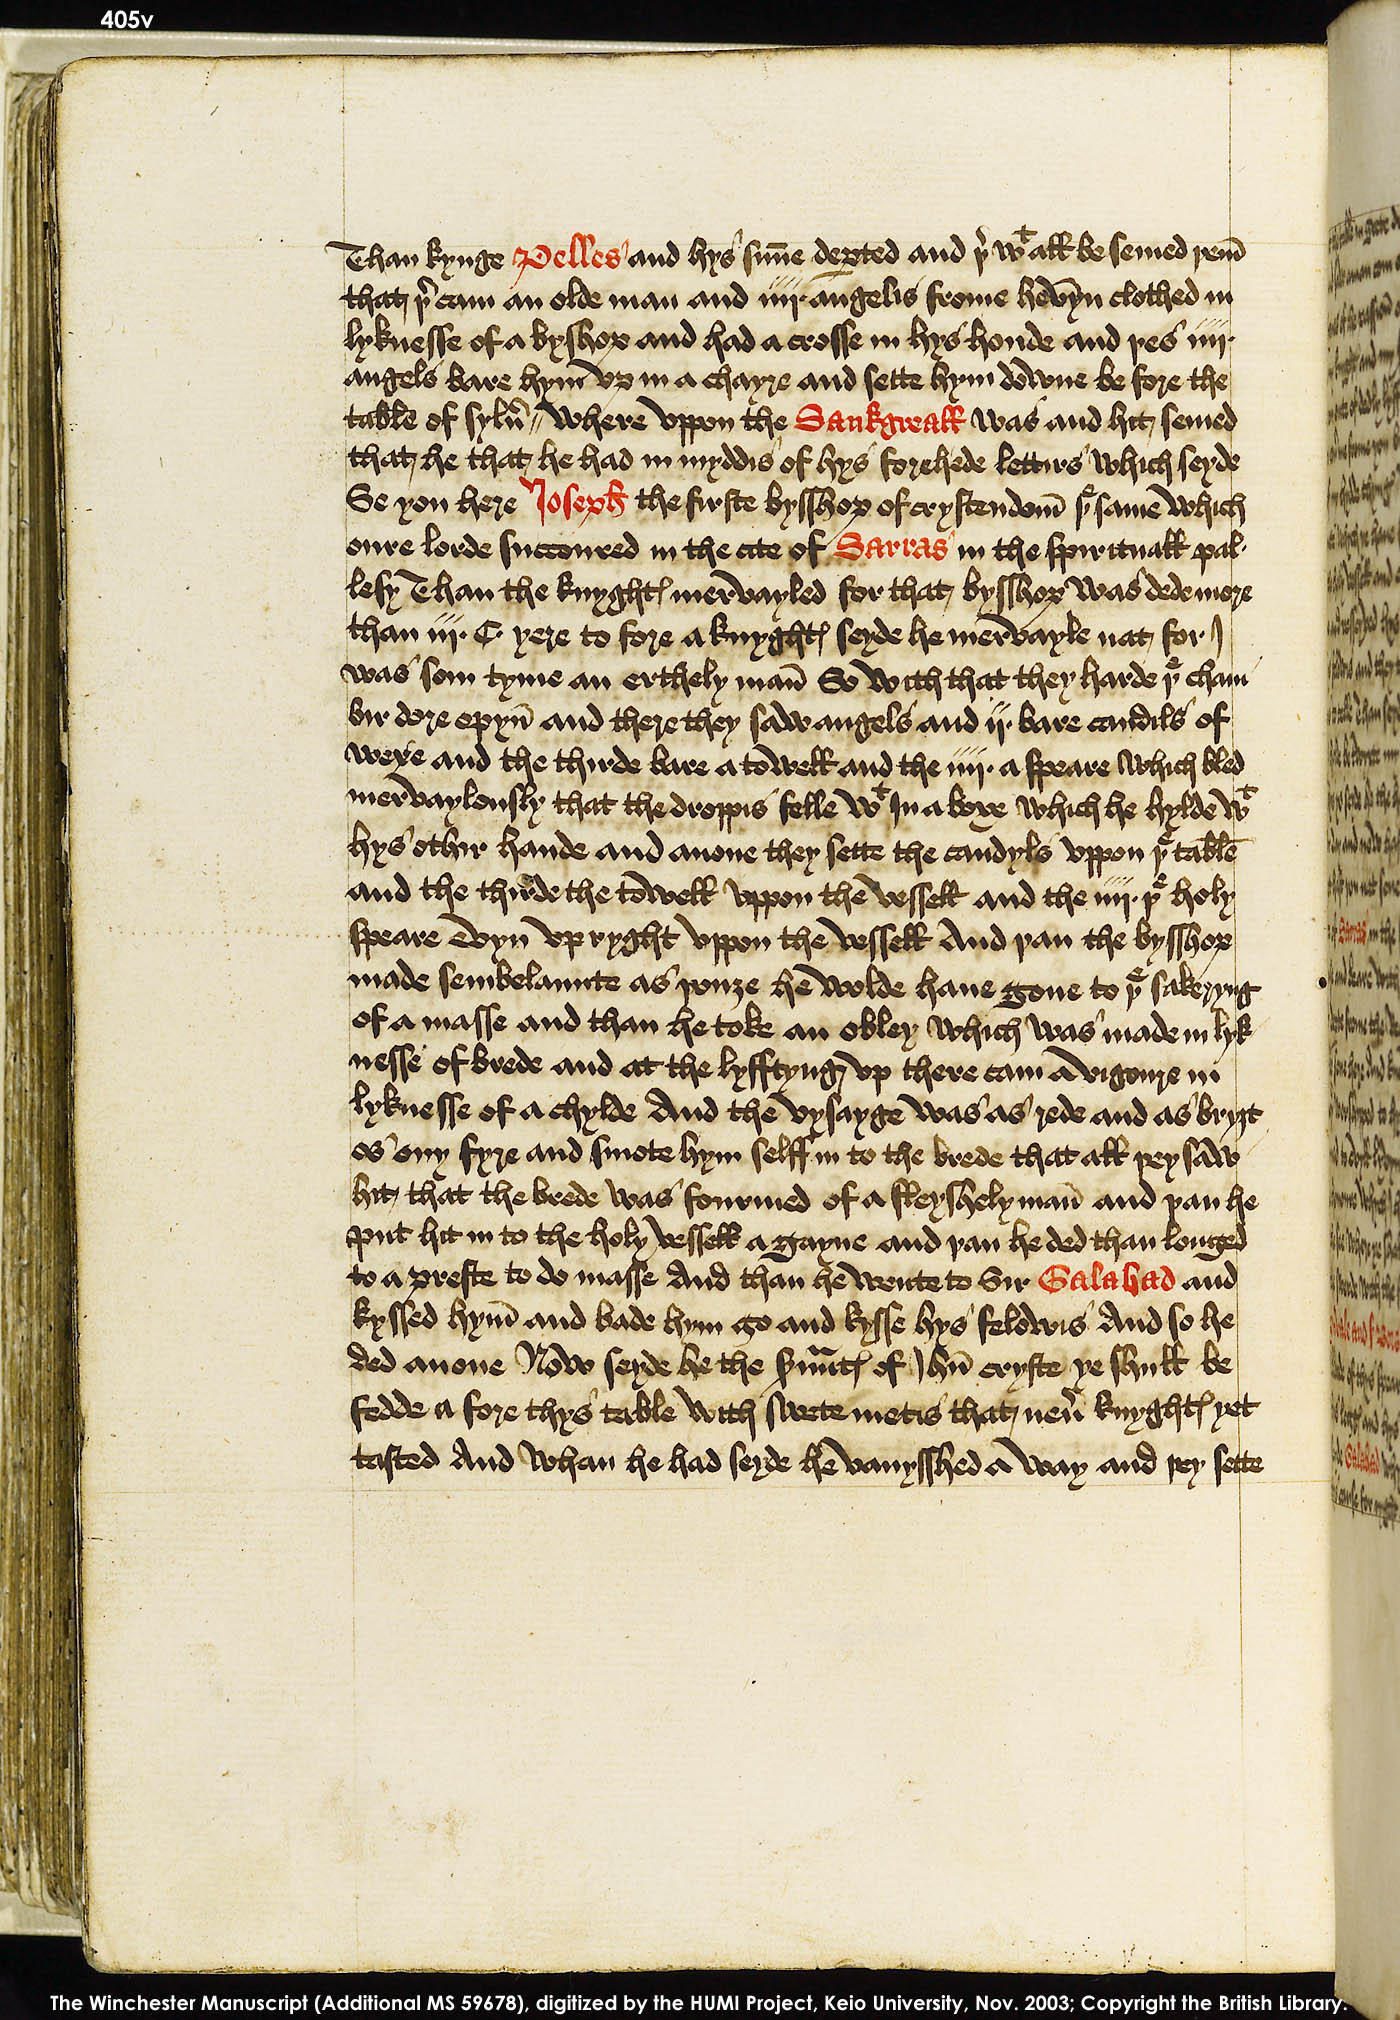 405v
Than kynge Pelles and hys sun̄e dep̱ted and þͬ wᵗ all be semed þem̄
that þͬ cam an olde man and iiij· angelis frome hevyn clothed in
lyknesse of a byshop and had a crosse in hys honde and þes iiij·
angels bare hym vp in a chayre and sette hym downe be fore the
table of sylu̾ // where vppon the Sankgreall was and hit semed
that he that he had in myddis of hys forehede lettirs which seyde
Se you here Joseph the firste bysshop of crystendom̄ þͤ same which
oure lorde succoured in the cite of Sarras in the spirituall pal
lesy Than the knyghtꝭ mervayled for that bysshop was dede more
than iij· C· yere to fore a knyghtꝭ seyde he mervayle nat for I
was som tyme an erthely man̄ So with that they harde þͤ cham
bir dore opyn̄ and there they saw angels and ij· bare candils of
wexe and the thirde bare a towell and the iiij· a speare which bled
mervaylously that the droppis felle wᵗ In a boxe which he hylde wᵗ
hys othir hande and anone they sette the candyls vppon þͤ table
and the thirde the towell vppon the vessell and the iiij· þͤ holy
speare evyn vp ryght vppon the vessell And þan the bysshop
made sembelaunte as þouze he wolde haue gone to þͤ sakeryng
of a masse and than he toke an obley which was made in lyk
nesse of brede and at the lyfftyng vp there cam a vigoure in
lyknesse of a chylde And the vysayge was as rede and as bryȝt
os ony fyre and smote hym selff in to the brede that all þey saw
hit that the brede was fourmed of a fleyshely man̄ and þan he
put hit in to the holy vessell a gayne and þan he ded than longed
to a preste to do masse And than he wente to Sir Galahad and
kyssed hym̄ and bade hym go and kysse hys felowis And so he
ded anone Now seyde he the s̾uᵃntꝭ of Jhū cryste ye shull be
fedde a fore thys table with swete metis that neu̾ knyghtꝭ yet
tasted And whan he had seyde he vanysshed a way and þey sette
The Winchester Manuscript (Additional MS 59678), digitized by the HUMI Project, Keio University, Nov. 2003; Copyright the British Library.